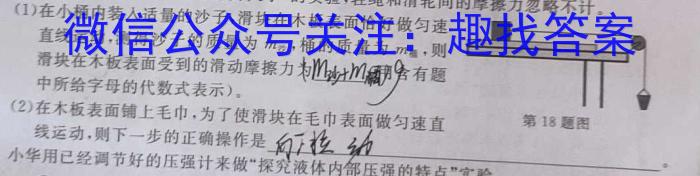 绳和滑轮间的摩擦力忽略不计。
(1)在小桶内装入适量的沙子,滑块在木板表面恰好做匀速
直线 质量为m 桶的质量为m桶,则
微信公众号关注:趣找答案
滑块在木板表面受到的滑动摩擦力为 (m沙+m桶)g 含有题
中所给字母的代数式表示)。
(2)在木板表面铺上毛巾,为了使滑块在毛巾表面做匀速直
第18题图
线运动,则下一步的正确操作是 向下拉动 。
小华用已经调节好的压强计来做“探究液体内部压强的特点”实验